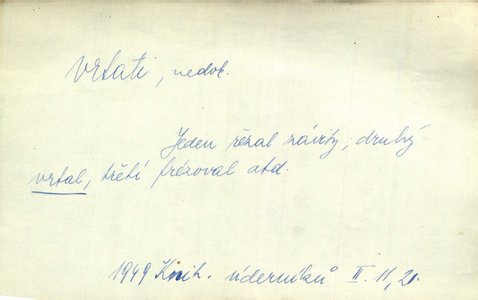 vrtati, nedok.
Jeden řezal závity, druhý
vrtal, třetí frézoval atd.
1949 Knih. úderníků II. 11, 21.